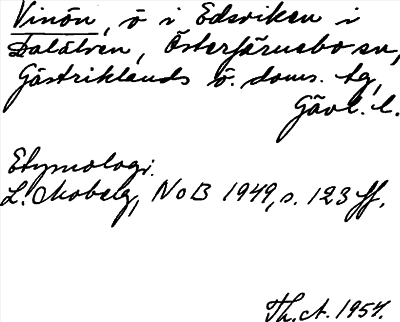 Vinön, ö i Edsviken i
Dalälven, Österfärnebo sn,
Gästriklands ö. doms. tg,
Gävl. l.
Etymologi.
L. Moberg, NoB 1949, s. 123 ff.
Th. A. 1957.